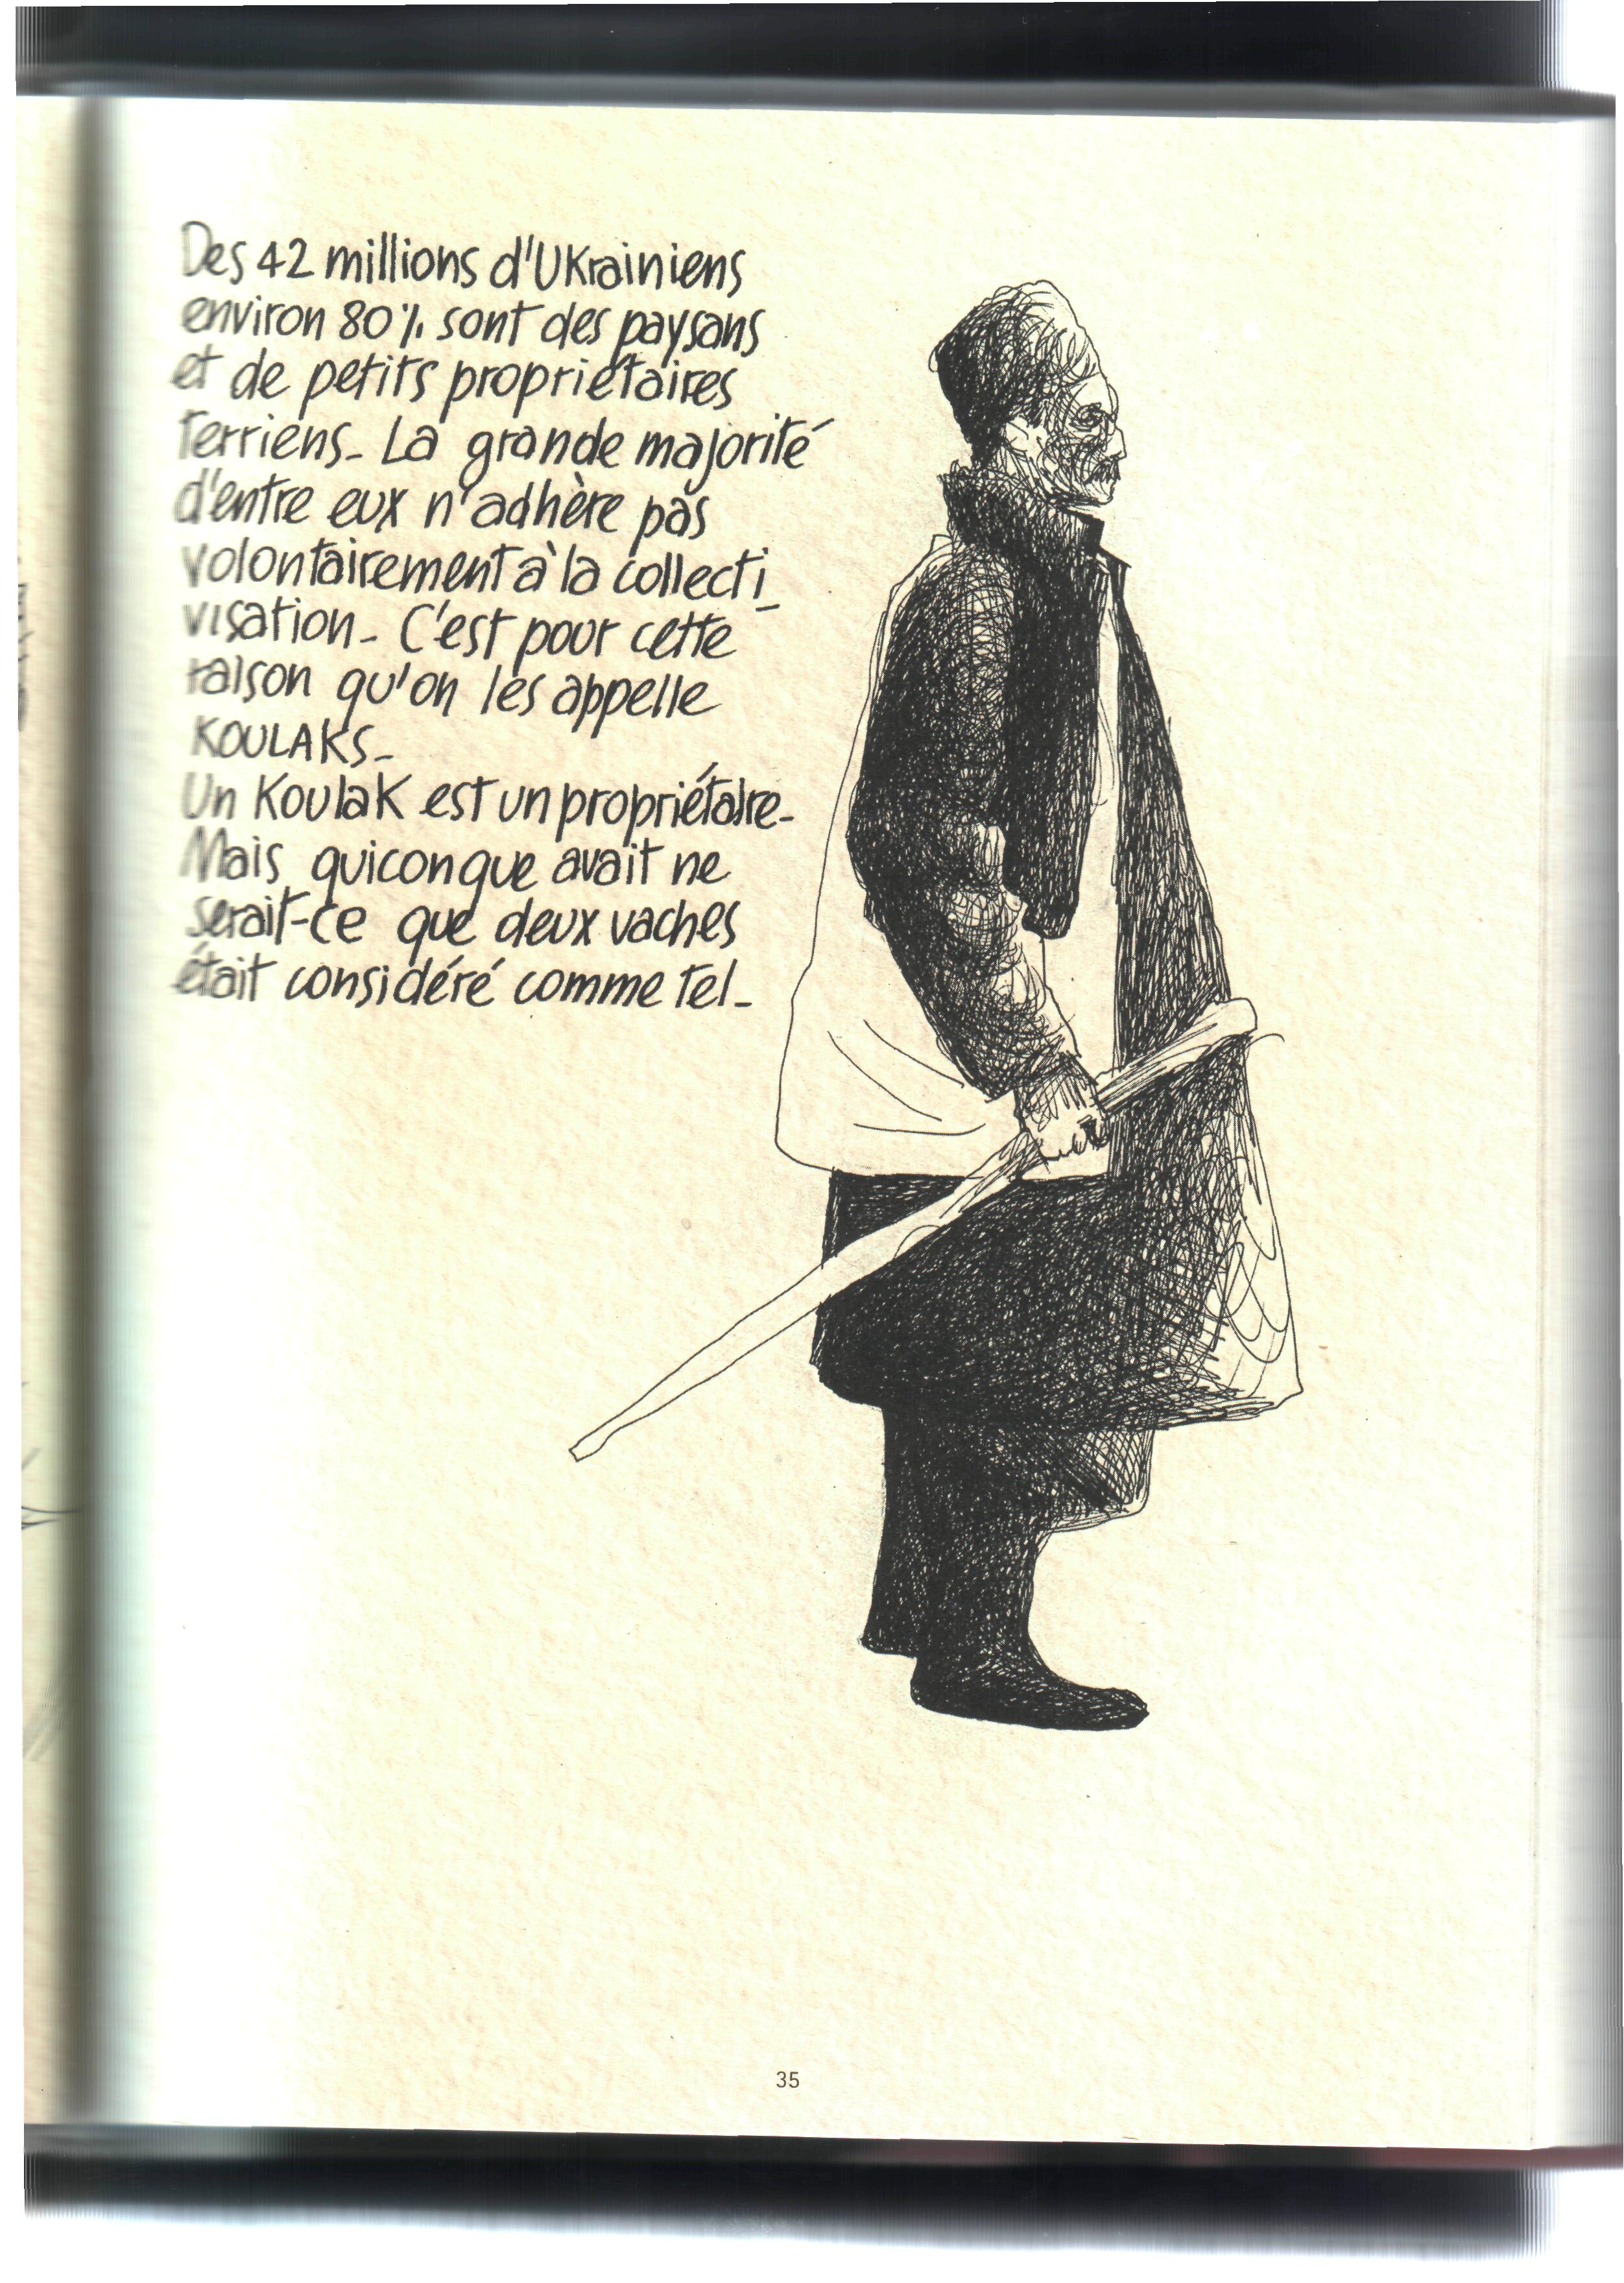 Des 42 millions d'Ukrainiens
environ 80% sont des paysans
et de petits propriétaires
terriens_ La grande majorité
d'entre eux n'adhère pas
volontairement à la collecti_
visation_ C'est pour cette
raison qu'on les appelle
KOULAKS_
Un Koulak est un propriétaire_
Mais quiconque avait ne
serait-ce que deux vaches
était considéré comme tel_
35